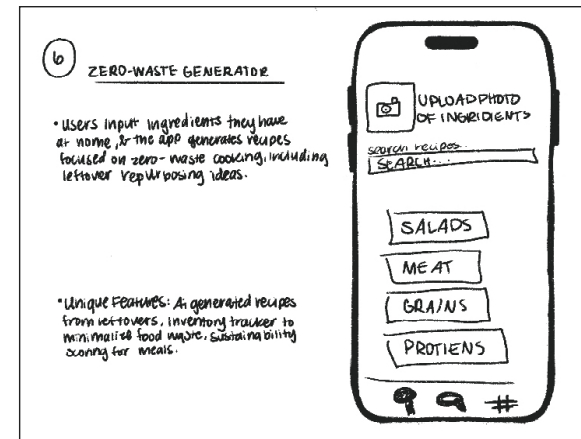 6
ZERO-WASTE GENERATOR
• Users input ingredients they have
at home, & the app generates recipes
focused on zero-waste cooking, including
leftover repurposing ideas.
• Unique Features: Ai generated recipes
from leftovers, inventory tracker to
minimalize food waste, sustainability
scoring for meals.
UPLOAD PHOTO
OF INGRIDIENTS
search recipes...
SEARCH...
SALADS
MEAT
GRAINS
PROTIENS